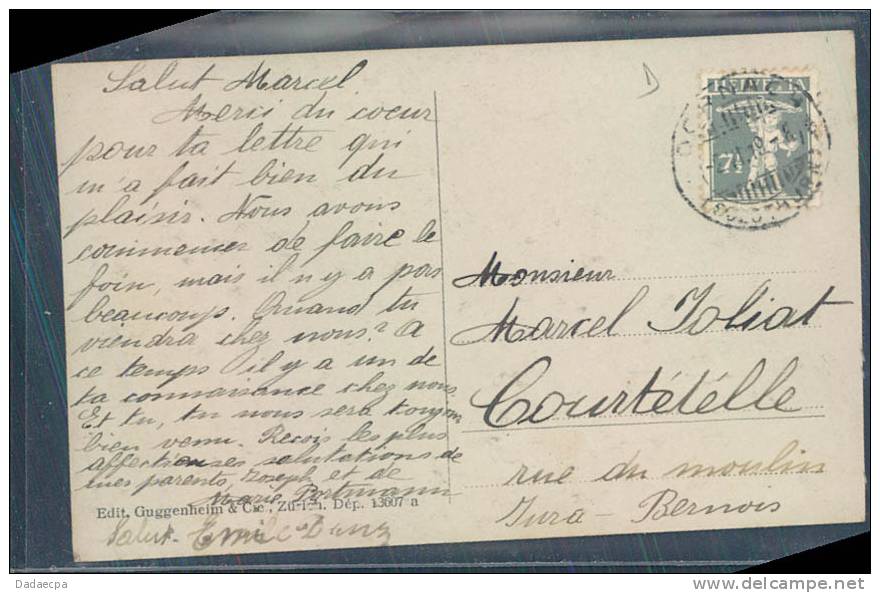 Salut Marcel.
Merci du coeur
pour ta lettre qui
m'a fait bien du
plaisir. Nous avons
commencer de faire le
foin, mais il n'y a pas
beaucoup. Quand tu
viendra chez nous? A
ce temps il y a un de
ta connaisance chez nous.
Et tu, tu nous sera toujours
bien venu. Reçois les plus
affectieuses salutations de
mes parents, Joseph et de
Marie Portmann
Edit. Guggenheim & Cie., Zürich. Dép. 13607 a
Salut. Emile
Monsieur
Marcel Joliat
Courtételle
rue du moulin
Jura - Bernois
HELVETIA
7½
(SOLOTHURN)
Dadaecpa
www.delcampe.net